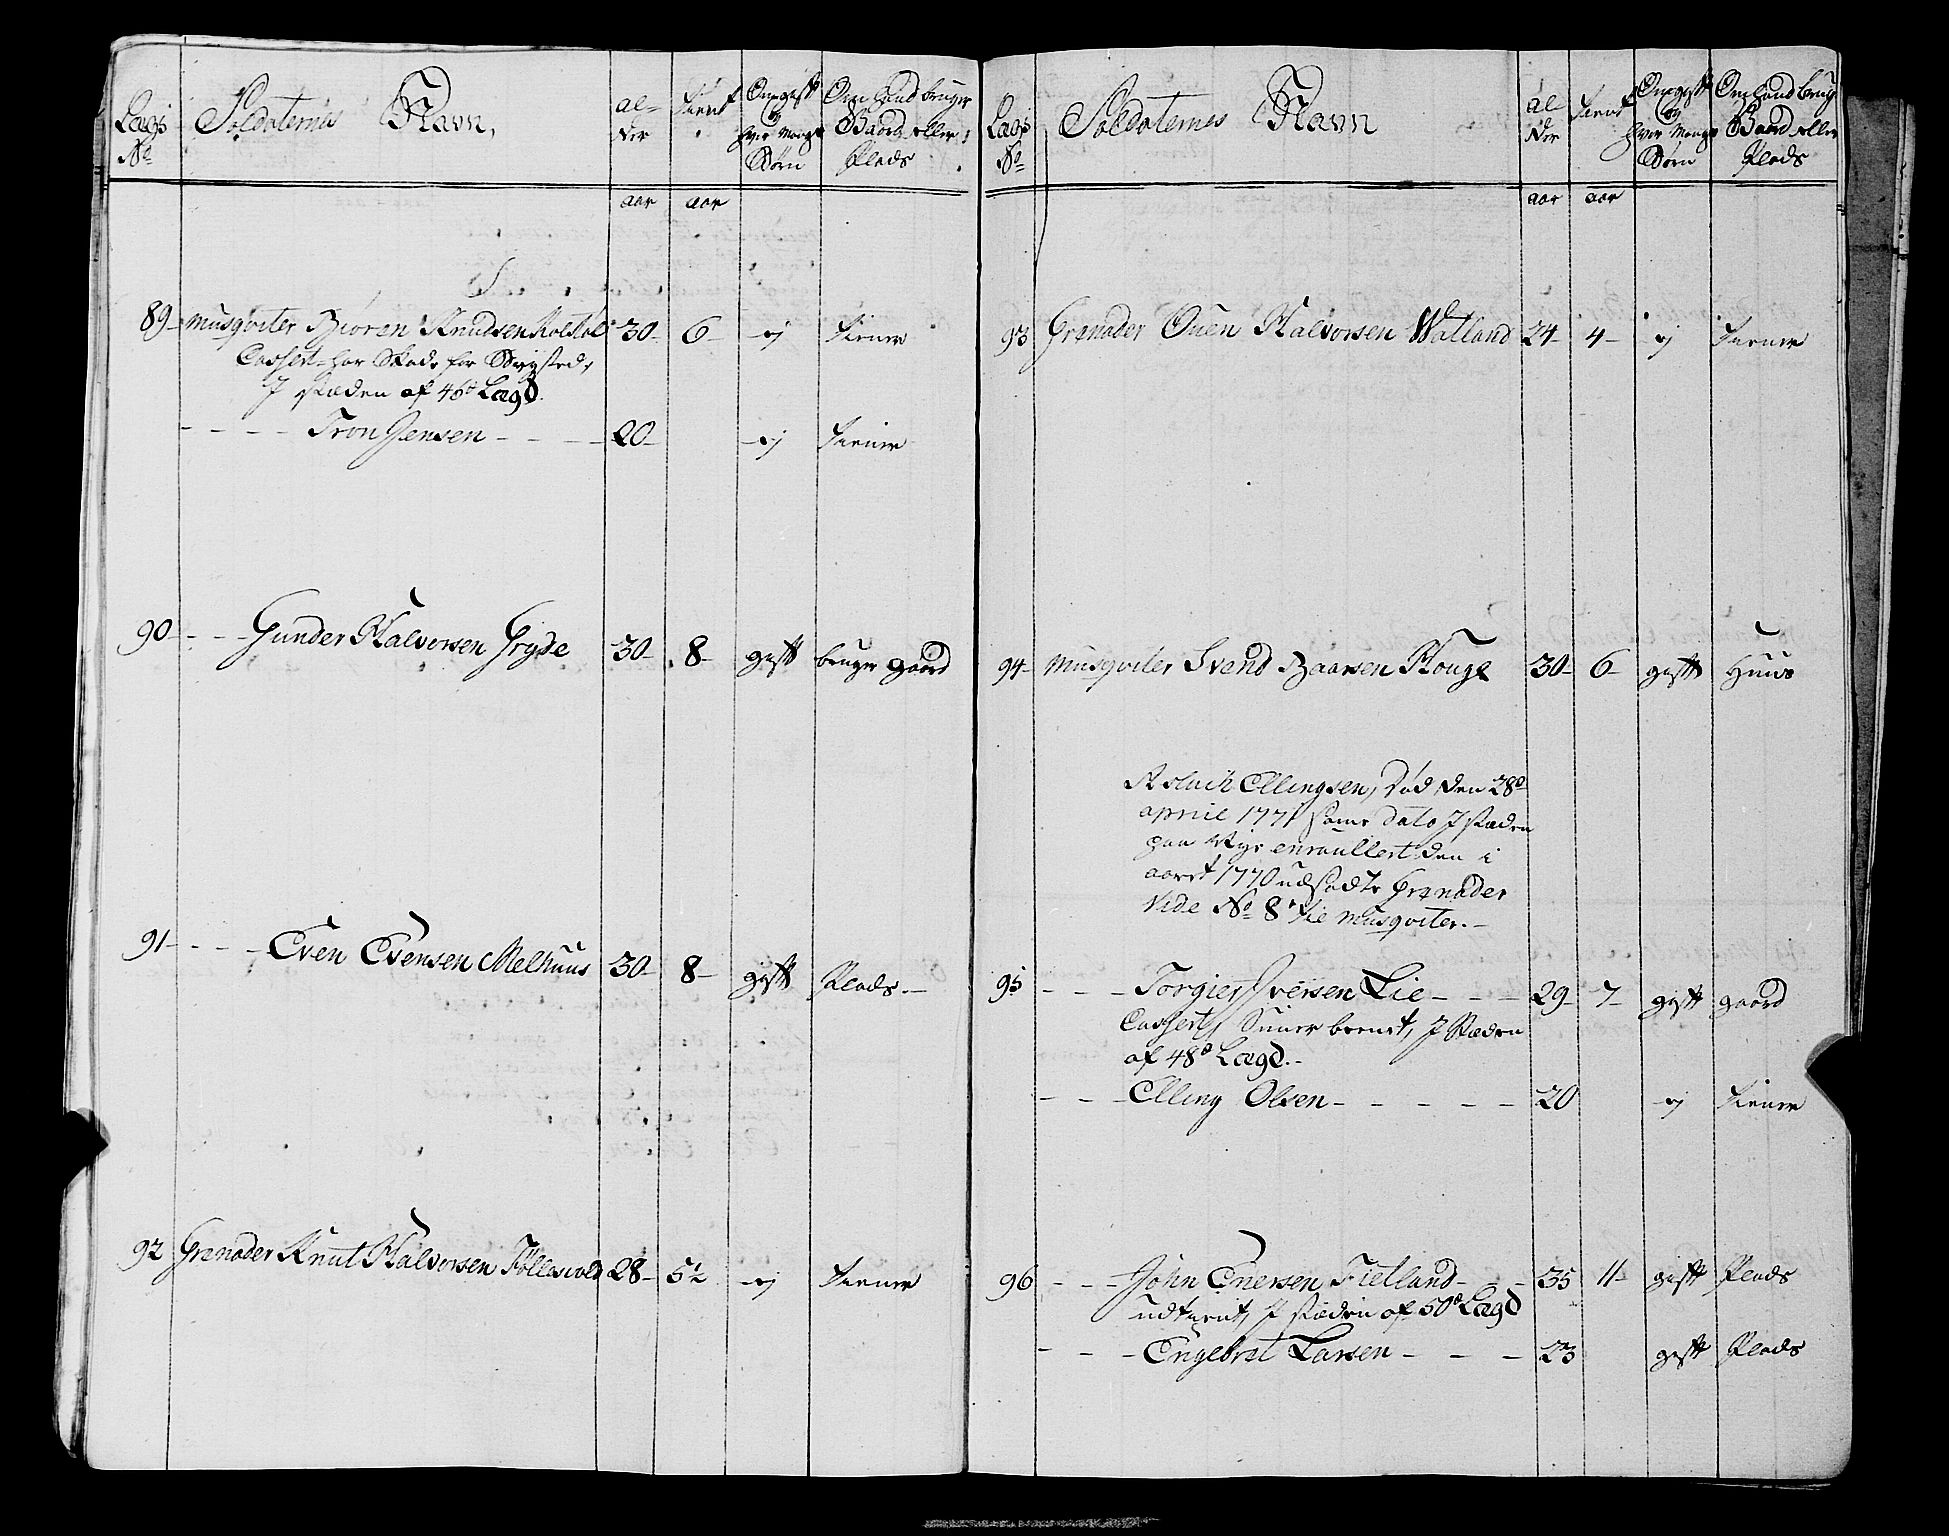 Lægs No Soldaternes Navn, al- der tient Om gift og hvor mange Børn Om hand bruger Gaard eller Plads
aar aar
89 Musqviter Biøren Knudsen 30 6 ej tiener
Casseret har Skade for Brystet,
I stæden af 46d Lægd.
Tron Jensen 20 ej tiener
90 Gunder Halvorsen Gryde 30 8 gift bruger gaard
91 Even Evensen Melhuus 30 8 gift Plads
92 Grenader Knut Halvorsen 28 5½ ej tiener
Lægs No Soldaternes Navn al der tient Om gift og hvor mange Børn Om hand brug Gaard eller Plads
aar aar
93 Grenader Ouen Halvorsen Watland 24 4 ej tiener
94 Musqviter Svend Baarsen Houge 30 6 gift Huus
Aslach Ellingsen, Død den 28d
april 1771 samme dato I stæden
paa Nye enroullert den i
aaret 1770 udsadte Grenader
Vide No 8 til Musqviter.
95 Torgier Iversen Lie 29 7 gift gaard
Casseret, I Stæden
af 48d Lægd.
Elling Olsen 20 ej tiener
96 John Enersen Fietland 35 11 gift Plads
udtient, I stæden af 50d Lægd
Engebret Larsen 23 gift Plads